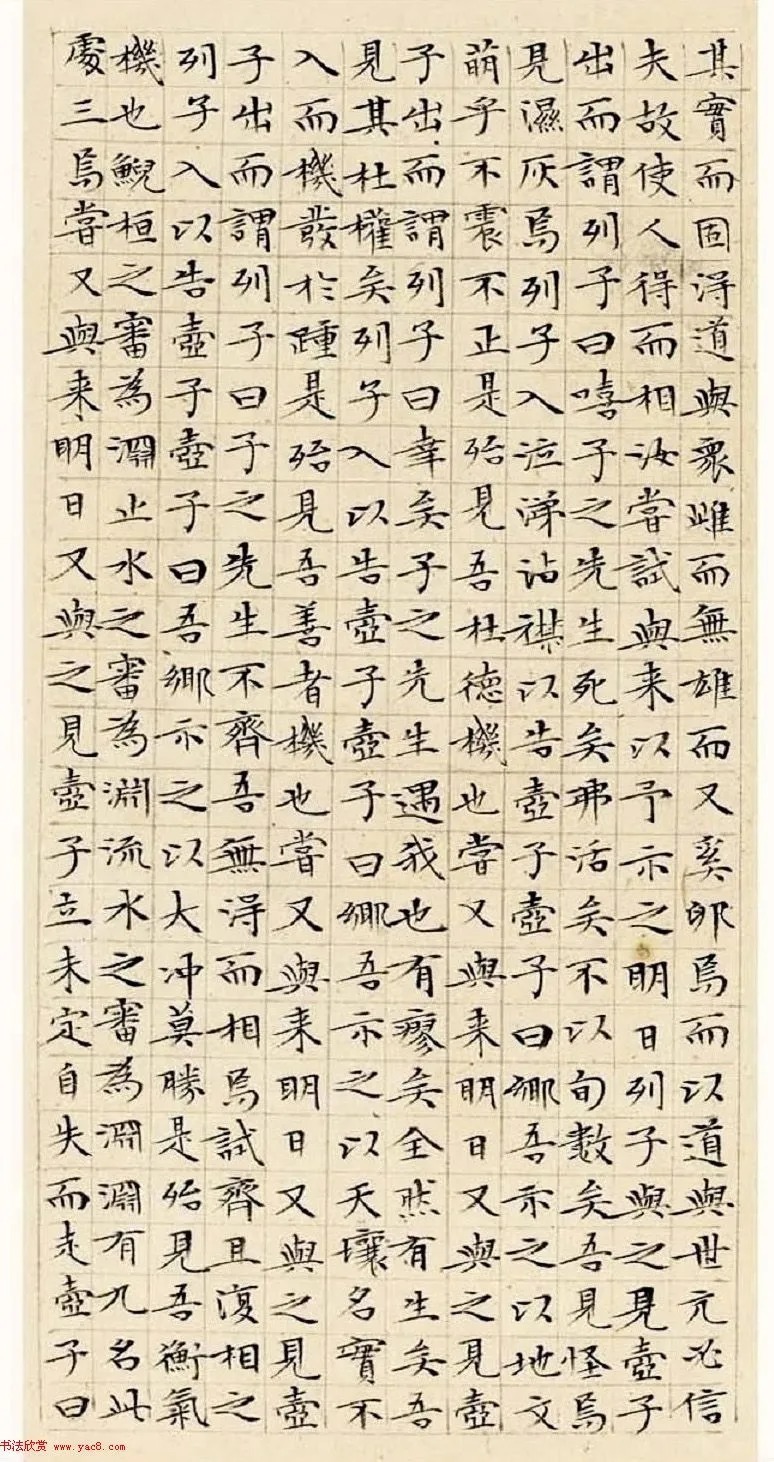 其實而固淂道與眾雌而無雄而又奚卵焉而以道與世亢必信
夫故使人得而相汝嘗試與来以予示之明日列子與之見壺子
出而謂列子曰嘻子之先生死矣弗活矣不以旬數矣吾見怪焉
見濕灰焉列子入泣涕沾襟以告壺子壺子曰鄉吾示之以地文
萌乎不震不正是殆見吾杜德機也嘗又與来明日又與之見壺
子出而謂列子曰幸矣子之先生遇我也有瘳矣全然有生矣吾
見其杜權矣列子入以告壺子壺子曰鄉吾示之以天壤名實不
入而機發於踵是殆見吾善者機也嘗又與来明日又與之見壺
子出而謂列子曰子之先生不齊吾無淂而相焉試齊且復相之
列子入以告壺子壺子曰吾鄉示之以大冲莫勝是殆見吾衡氣
機也鯢桓之審為淵止水之審為淵流水之審為淵淵有九名此
處三焉嘗又與来明日又與之見壺子立未定自失而走壺子曰
书法欣赏 www.yac8.com